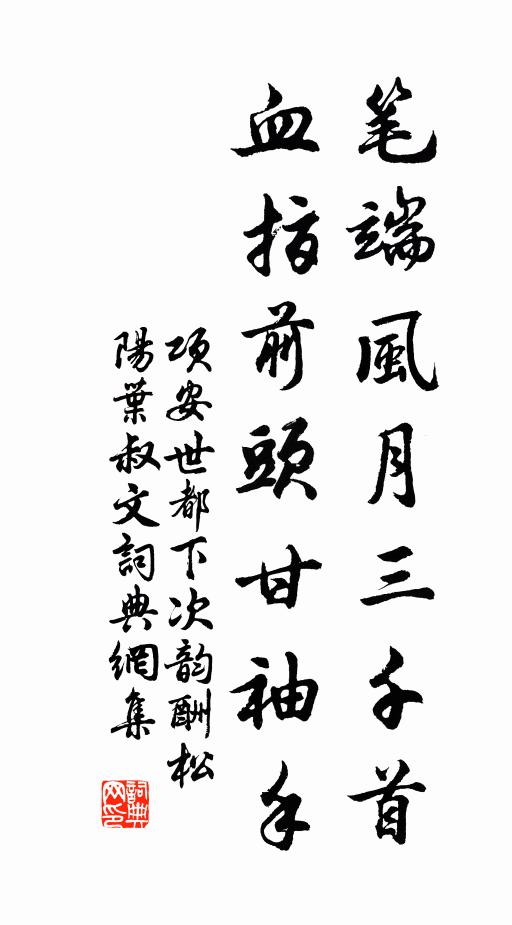 笔端風月三千首
血指前頭甘袖手
項安世都下次韵酬松
陽葉叔文詞典網集
詞典網印